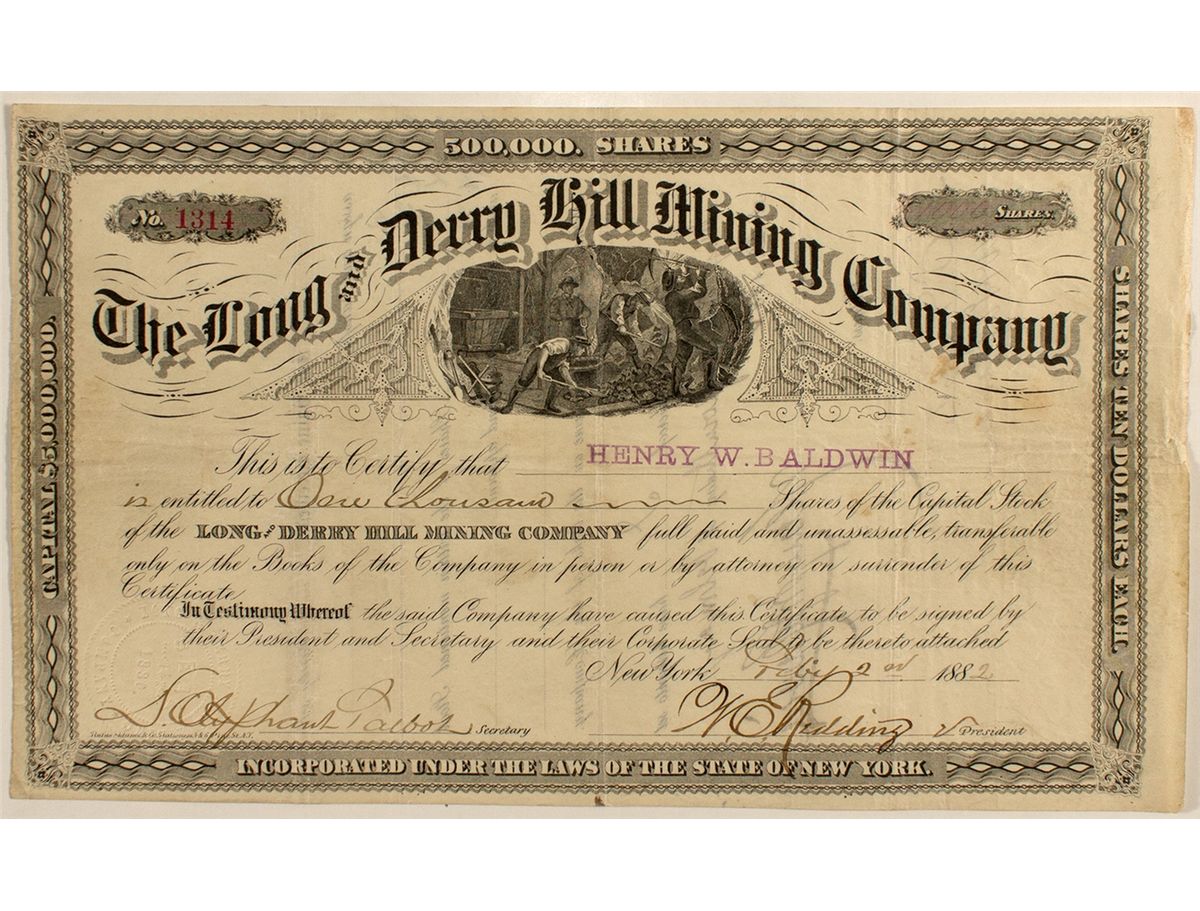 500,000. SHARES
No. 1314
SHARES.
The Long and Derry Hill Mining Company
CAPITAL $5,000,000.
SHARES TEN DOLLARS EACH
This is to Certify that HENRY W. BALDWIN
is entitled to One thousand Shares of the Capital Stock
of the LONG AND DERRY HILL MINING COMPANY full paid and unassessable, transferable
only on the Books of the Company in person or by attorney on surrender of this
Certificate.
In Testimony Whereof the said Company have caused this Certificate to be signed by
their President and Secretary and their Corporate Seal to be thereto attached
New York Feby 2nd 1882
S. Olyphant Talbot Secretary
W E Redding President
INCORPORATED UNDER THE LAWS OF THE STATE OF NEW YORK.